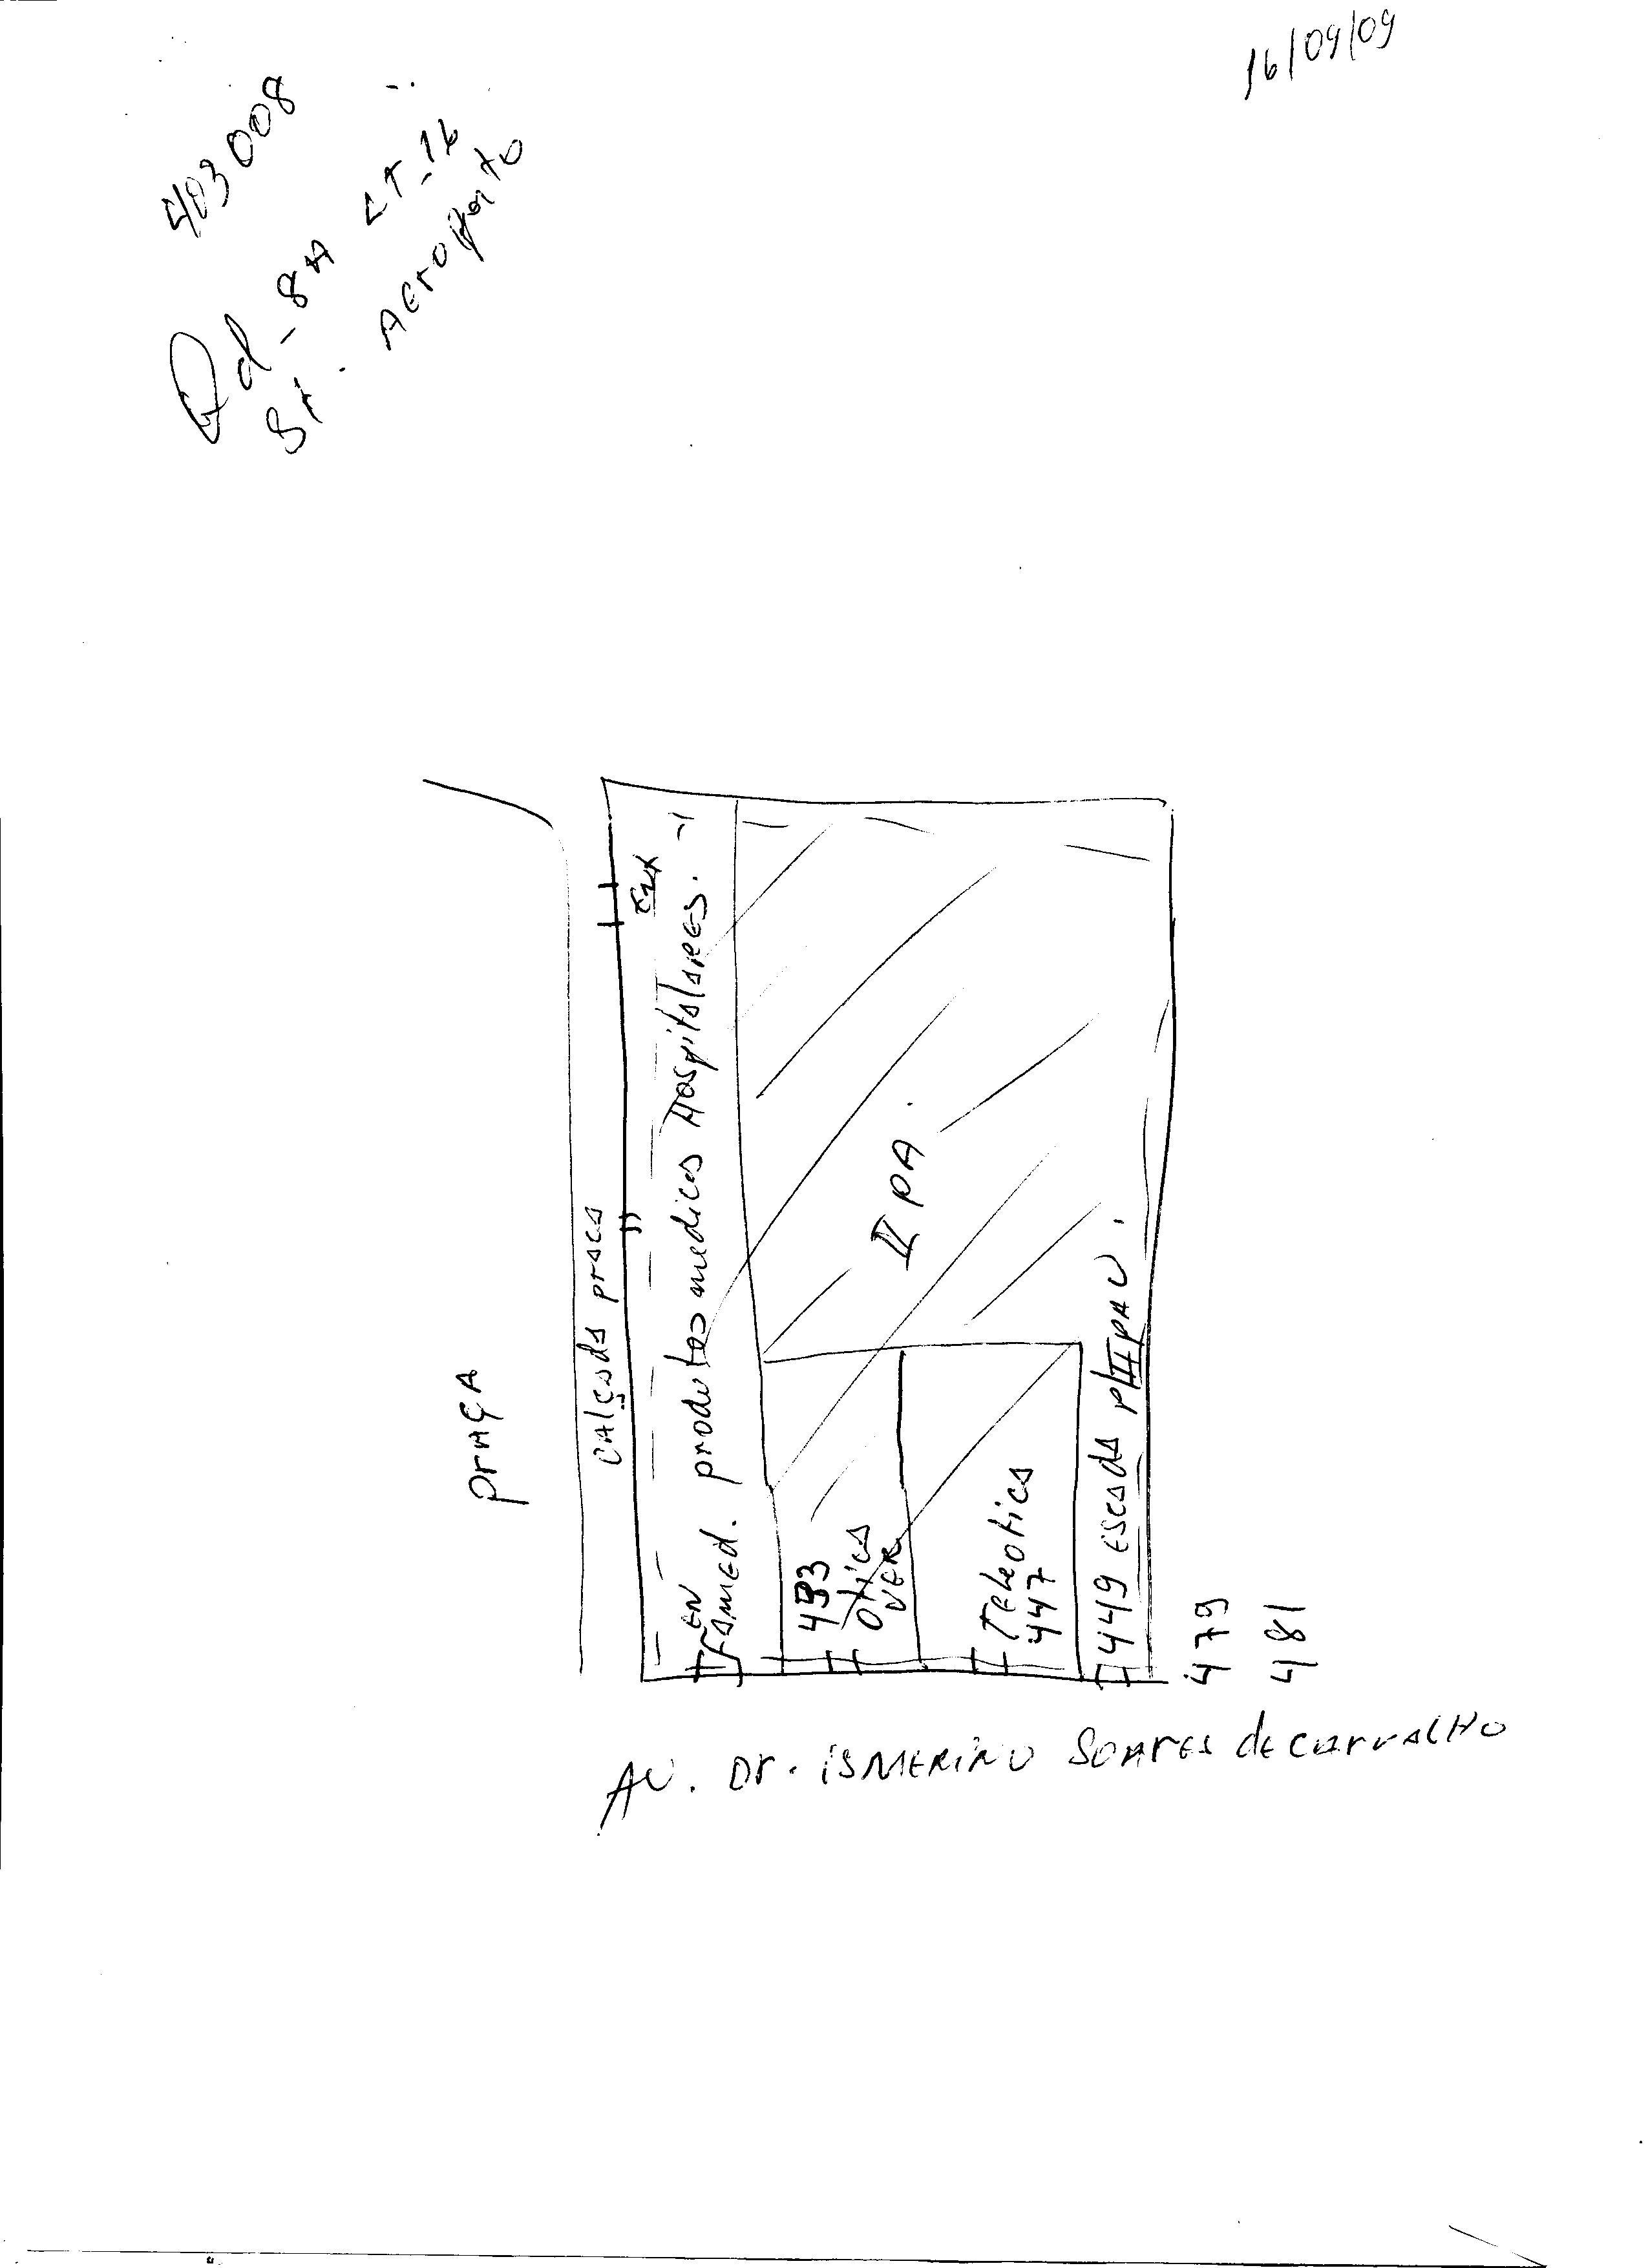 16/09/09
403008
Qd - 8A LT-16
St. Aeroporto
PrAÇA
CAlçada praca
Ent
EN
Famed. produtos medicos Hospitalares.
II PA.
Otica
VER
Teleotica
447
449 Escada p/ II PAV.
479
481
AV. Dr. iSMERiNO SOAres de CArvAlHO